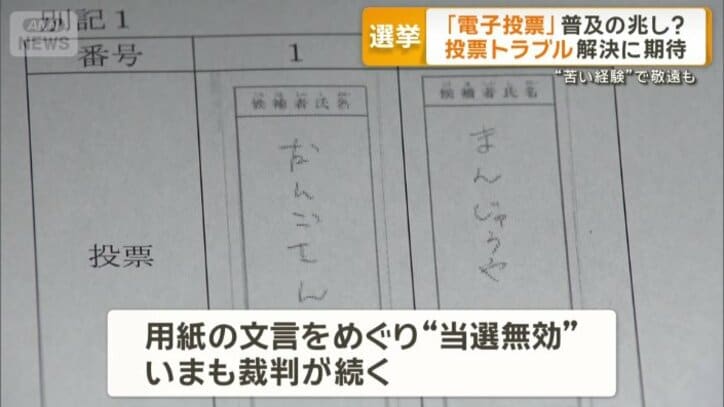 ANN
NEWS
選挙
「電子投票」普及の兆し?
投票トラブル 解決に期待
“苦い経験”で敬遠も
別記1
番号
1
候補者氏名
候補者氏名
まんじゅうや
投票
用紙の文言をめぐり“当選無効”
いまも裁判が続く